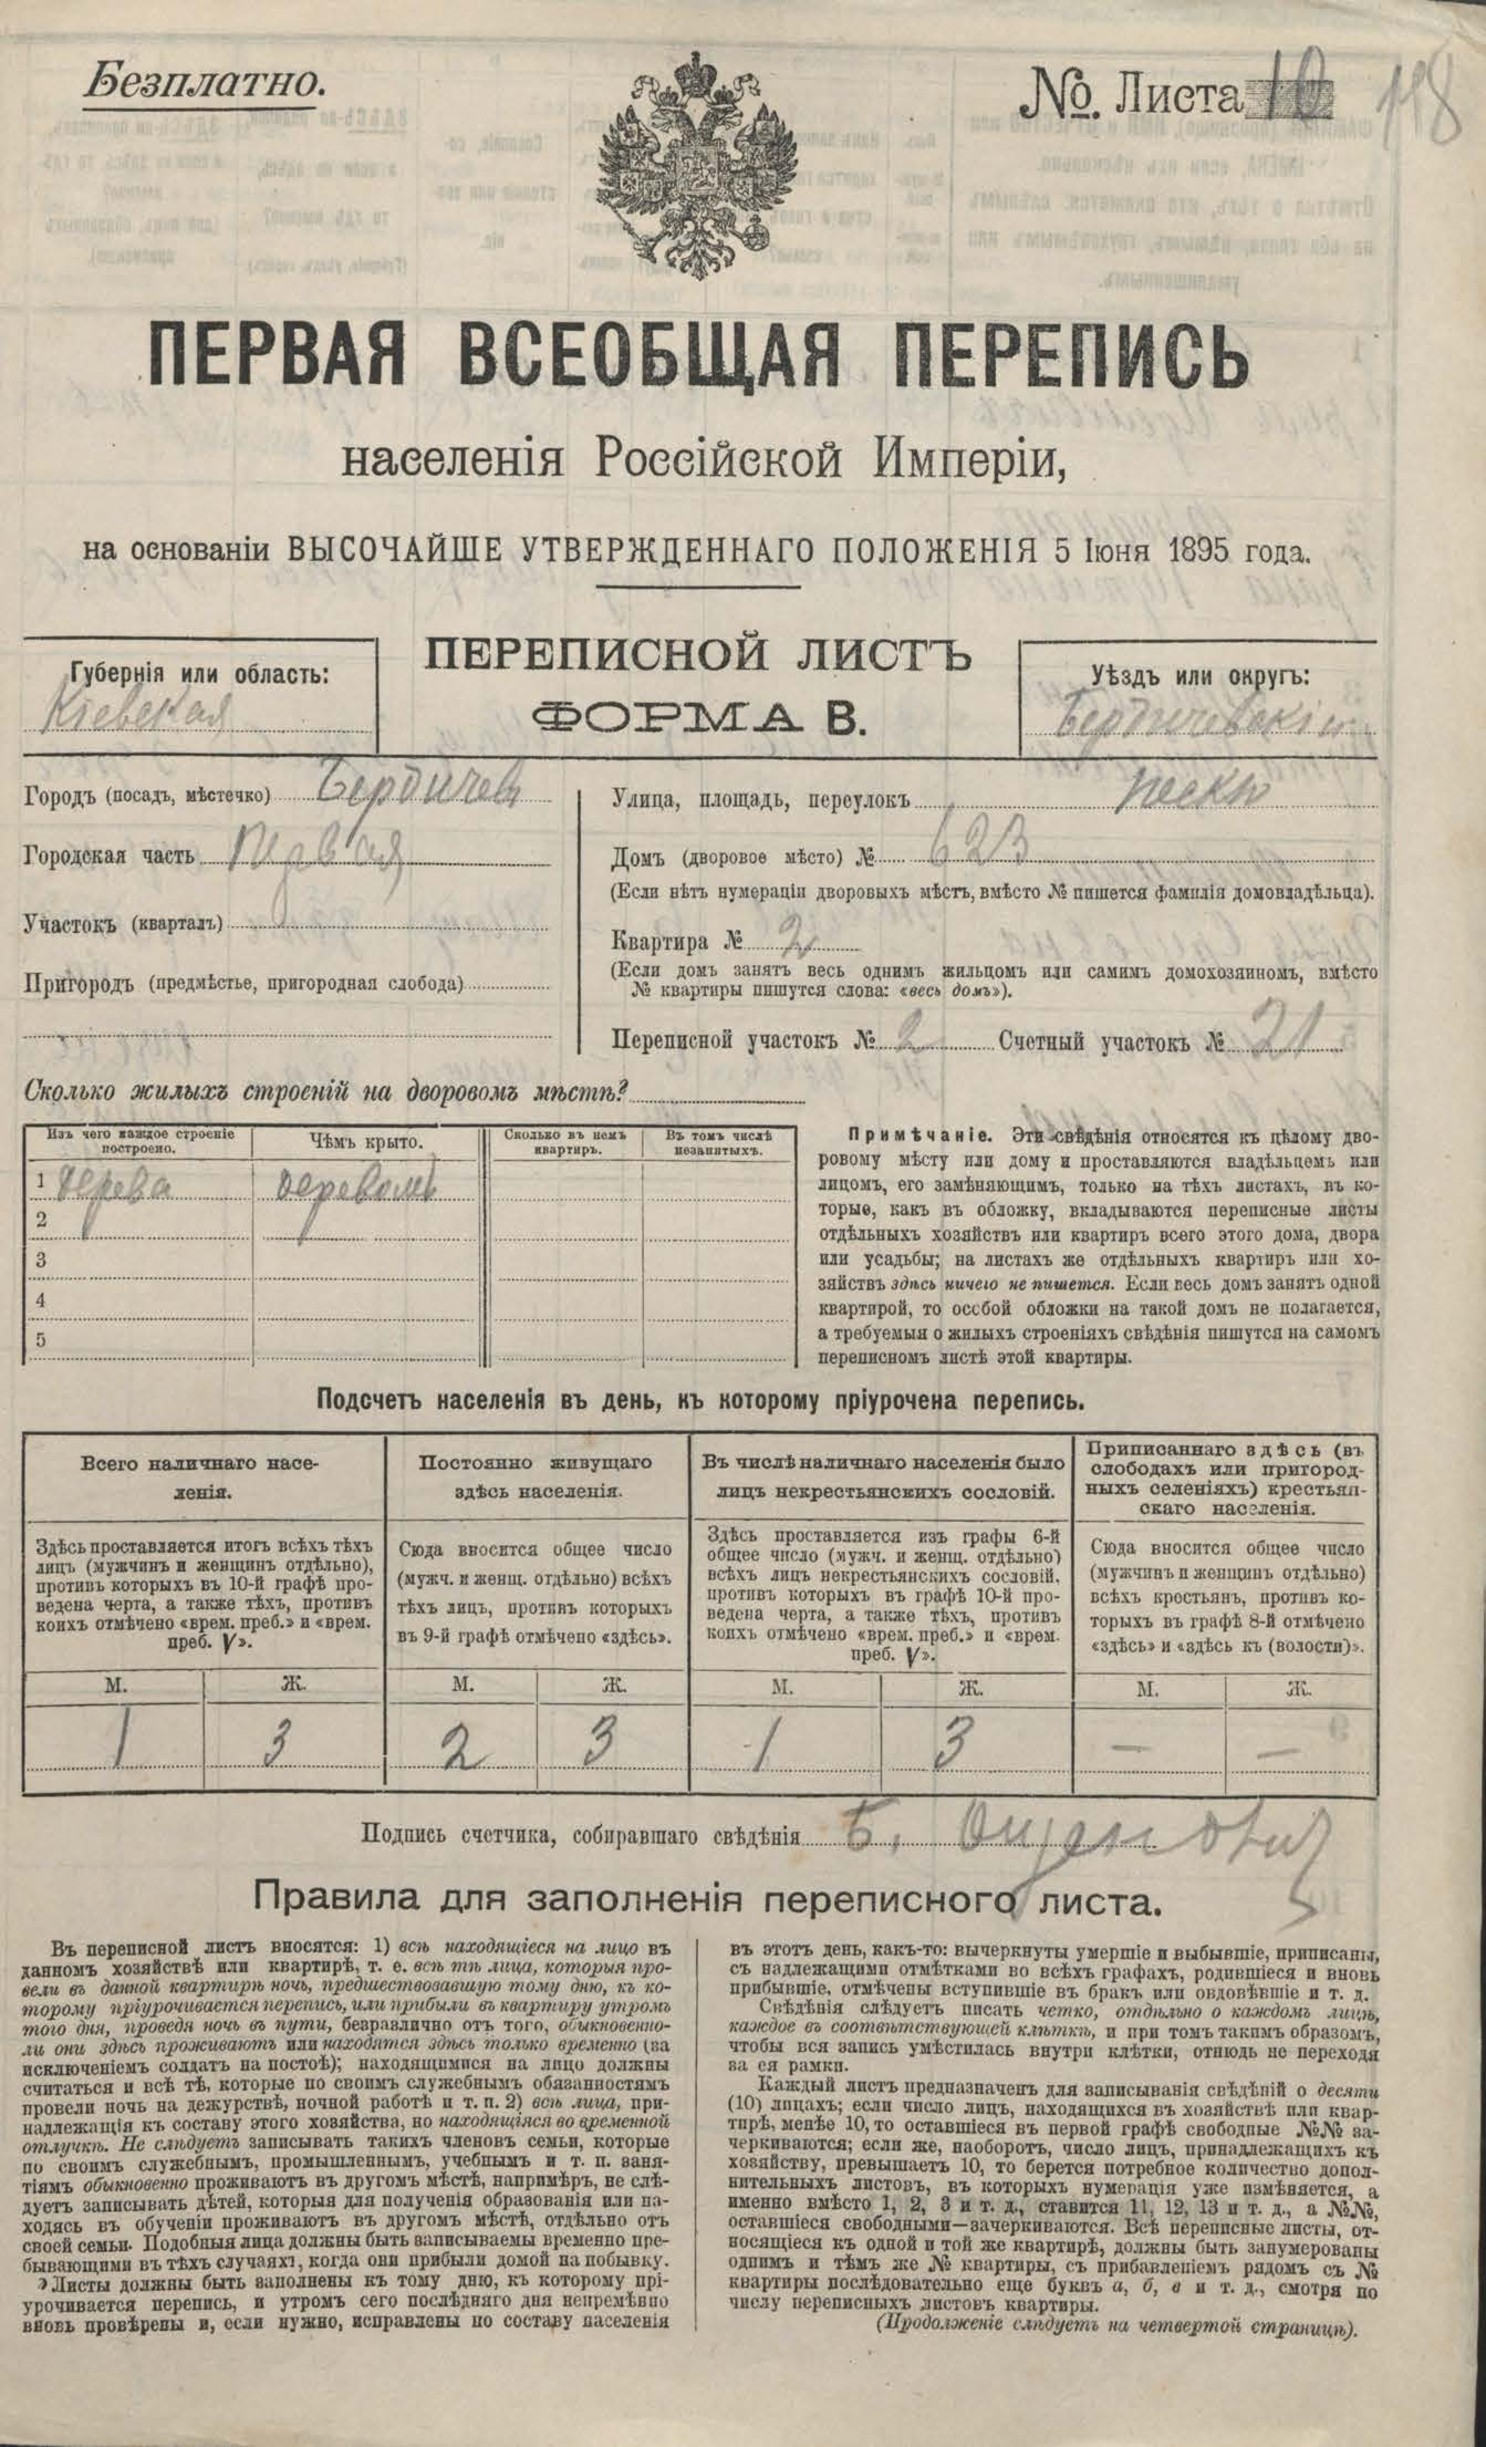 Безплатно.
№. Листа 10 118
ПЕРВАЯ ВСЕОБЩАЯ ПЕРЕПИСЬ
населенія Россійской Имперіи,
на основаніи ВЫСОЧАЙШЕ УТВЕРЖДЕННАГО ПОЛОЖЕНІЯ 5 Іюня 1895 года.
Губернія или область:
Кіевская
ПЕРЕПИСНОЙ ЛИСТЪ
ФОРМА В.
Уѣздъ или округъ:
Бердичевскій
Городъ (посадъ, мѣстечко) Бердичев
Городская часть Первая
Участокъ (кварталъ)
Пригородъ (предмѣстье, пригородная слобода)
Улица, площадь, переулокъ пески
Домъ (дворовое мѣсто) № 623
(Если нѣтъ нумераціи дворовыхъ мѣстъ, вмѣсто № пишется фамилія домовладѣльца).
Квартира № 2
(Если домъ занятъ весь однимъ жильцомъ или самимъ домохозяиномъ, вмѣсто
№ квартиры пишутся слова: «весь домъ»).
Переписной участокъ № 2 Счетный участокъ № 21
Сколько жилыхъ строеній на дворовомъ мѣстѣ?
Изъ чего каждое строеніе
построено.
Чѣмъ крыто.
Сколько въ немъ
квартиръ.
Въ томъ числѣ
незанятыхъ.
1 дерева деревомъ
2
3
4
5
Примѣчаніе. Эти свѣдѣнія относятся къ цѣлому дво-
ровому мѣсту или дому и проставляются владѣльцемъ или
лицомъ, его замѣняющимъ, только на тѣхъ листахъ, въ ко-
торые, какъ въ обложку, вкладываются переписные листы
отдѣльныхъ хозяйствъ или квартиръ всего этого дома, двора
или усадьбы; на листахъ же отдѣльныхъ квартиръ или хо-
зяйствъ здѣсь ничего не пишется. Если весь домъ занятъ одной
квартирой, то особой обложки на такой домъ не полагается,
а требуемыя о жилыхъ строеніяхъ свѣдѣнія пишутся на самомъ
переписномъ листѣ этой квартиры.
Подсчетъ населенія въ день, къ которому пріурочена перепись.
Всего наличнаго насе-
ленія.
Здѣсь проставляется итогъ всѣхъ тѣхъ
лицъ (мужчинъ и женщинъ отдѣльно),
противъ которыхъ въ 10-й графѣ про-
ведена черта, а также тѣхъ, противъ
коихъ отмѣчено «врем. преб.» и «врем.
преб. V».
Постоянно живущаго
здѣсь населенія.
Сюда вносится общее число
(мужч. и женщ. отдѣльно) всѣхъ
тѣхъ лицъ, противъ которыхъ
въ 9-й графѣ отмѣчено «здѣсь».
Въ числѣ наличнаго населенія было
лицъ некрестьянскихъ сословій.
Здѣсь проставляется изъ графы 6-й
общее число (мужч. и женщ. отдѣльно)
всѣхъ лицъ некрестьянскихъ сословій,
противъ которыхъ въ графѣ 10-й про-
ведена черта, а также тѣхъ, противъ
коихъ отмѣчено «врем. преб.» и «врем.
преб. V».
Приписаннаго здѣсь (въ
слободахъ или пригород-
ныхъ селеніяхъ) крестьян-
скаго населенія.
Сюда вносится общее число
(мужчинъ и женщинъ отдѣльно)
всѣхъ крестьянъ, противъ ко-
торыхъ въ графѣ 8-й отмѣчено
«здѣсь» и «здѣсь къ (волости)».
М. Ж. М. Ж. М. Ж. М. Ж.
1 3 2 3 1 3 — —
Подпись счетчика, собиравшаго свѣдѣнія Б.
Правила для заполненія переписного листа.
Въ переписной листъ вносятся: 1) всѣ находящіеся на лицо въ
данномъ хозяйствѣ или квартирѣ, т. е. всѣ тѣ лица, которыя про-
вели въ данной квартирѣ ночь, предшествовавшую тому дню, къ ко-
торому пріурочивается перепись, или прибыли въ квартиру утромъ
того дня, проведя ночь въ пути, безразлично отъ того, обыкновенно-
ли они здѣсь проживаютъ или находятся здѣсь только временно (за
исключеніемъ солдатъ на постоѣ); находящимися на лицо должны
считаться и всѣ тѣ, которые по своимъ служебнымъ обязанностямъ
провели ночь на дежурствѣ, ночной работѣ и т. п. 2) всѣ лица, при-
надлежащія къ составу этого хозяйства, но находящіяся во временной
отлучкѣ. Не слѣдуетъ записывать такихъ членовъ семьи, которые
по своимъ служебнымъ, промышленнымъ, учебнымъ и т. п. заня-
тіямъ обыкновенно проживаютъ въ другомъ мѣстѣ, напримѣръ, не слѣ-
дуетъ записывать дѣтей, которыя для полученія образованія или на-
ходясь въ обученіи проживаютъ въ другомъ мѣстѣ, отдѣльно отъ
своей семьи. Подобныя лица должны быть записываемы временно пре-
бывающими въ тѣхъ случаяхъ, когда они прибыли домой на побывку.
Листы должны быть заполнены къ тому дню, къ которому прі-
урочивается перепись, и утромъ сего послѣдняго дня непремѣнно
вновь провѣрены и, если нужно, исправлены по составу населенія
въ этотъ день, какъ-то: вычеркнуты умершіе и выбывшіе, приписаны,
съ надлежащими отмѣтками во всѣхъ графахъ, родившіеся и вновь
прибывшіе, отмѣчены вступившіе въ бракъ или овдовѣвшіе и т. д.
Свѣдѣнія слѣдуетъ писать четко, отдѣльно о каждомъ лицѣ,
каждое въ соотвѣтствующей клѣткѣ, и при томъ такимъ образомъ,
чтобы вся запись умѣстилась внутри клѣтки, отнюдь не переходя
за ея рамки.
Каждый листъ предназначенъ для записыванія свѣдѣній о десяти
(10) лицахъ; если число лицъ, находящихся въ хозяйствѣ или квар-
тирѣ, менѣе 10, то оставшіеся въ первой графѣ свободные №№ за-
черкиваются; если же, наоборотъ, число лицъ, принадлежащихъ къ
хозяйству, превышаетъ 10, то берется потребное количество допол-
нительныхъ листовъ, въ которыхъ нумерація уже измѣняется, а
именно вмѣсто 1, 2, 3 и т. д., ставится 11, 12, 13 и т. д., а №№,
оставшіеся свободными—зачеркиваются. Всѣ переписные листы, от-
носящіеся къ одной и той же квартирѣ, должны быть занумерованы
однимъ и тѣмъ же № квартиры, съ прибавленіемъ рядомъ съ №
квартиры послѣдовательно еще буквъ а, б, в и т. д., смотря по
числу переписныхъ листовъ квартиры.
(Продолженіе слѣдуетъ на четвертой страницѣ).